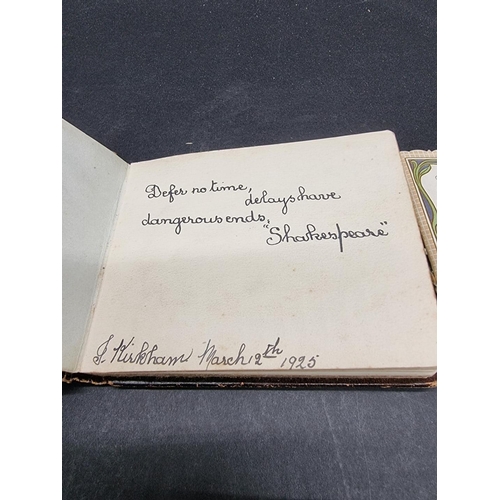 Defer no time,
delays have
dangerous ends,
"Shakespeare"
J. Kirkham March 12th 1925